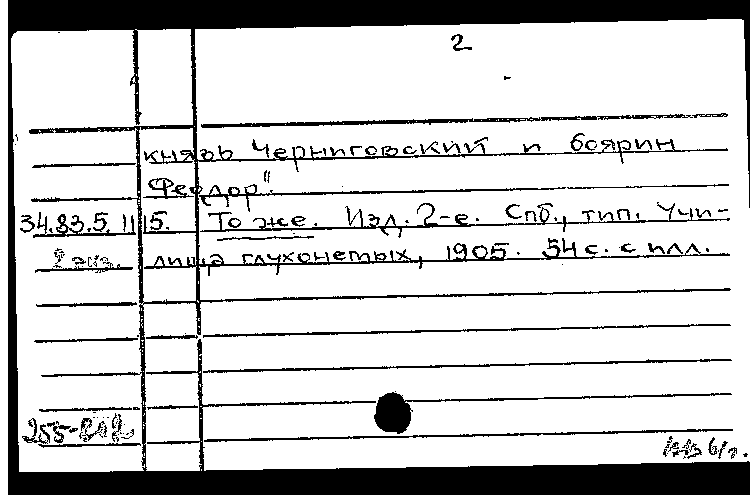 2
князь Черниговский и боярин
Феодор".
34.83.5.115. То же. Изд. 2-е. Спб., тип. Учи-
2 экз. лища глухонемых, 1905. 54 с. с илл.